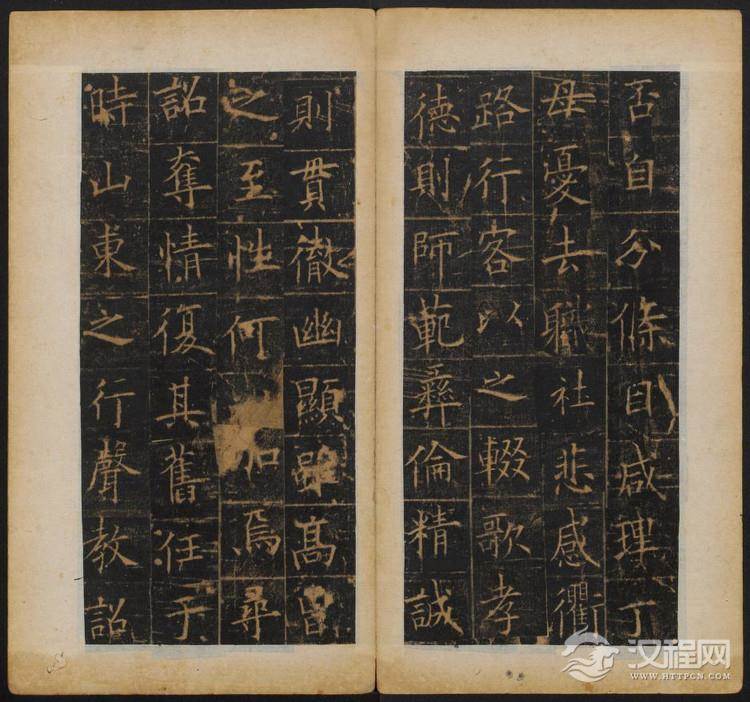 否自分條目咸理丁
母憂去職社悲感衢
路行客以之輟歌孝
德則師範彝倫精誠
則貫徹幽顯雖高曾
之至性何以加焉尋
詔奪情復其舊任于
時山東之行聲教詔
汉程网
WWW.HTTPCN.COM